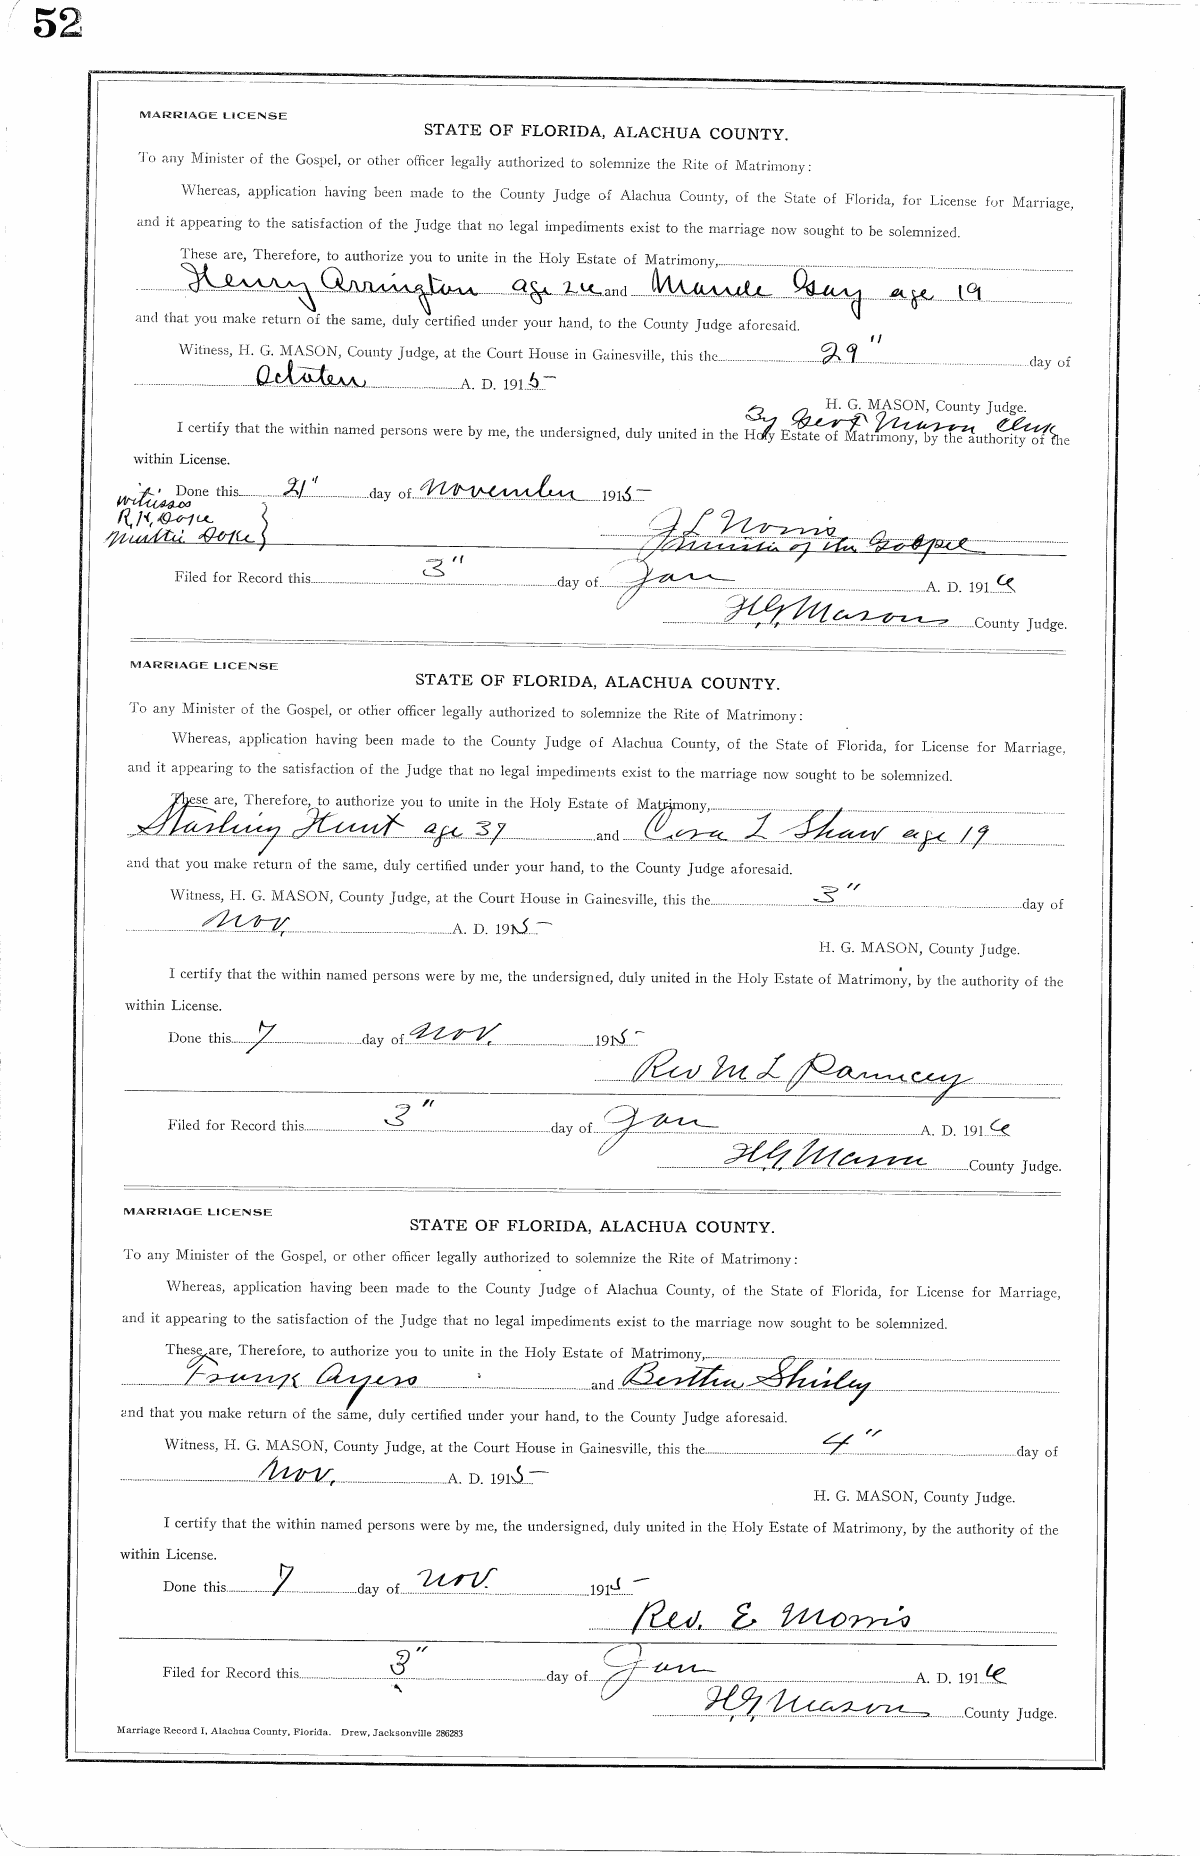 52
MARRIAGE LICENSE
STATE OF FLORIDA, ALACHUA COUNTY.
To any Minister of the Gospel, or other officer legally authorized to solemnize the Rite of Matrimony:
Whereas, application having been made to the County Judge of Alachua County, of the State of Florida, for License for Marriage,
and it appearing to the satisfaction of the Judge that no legal impediments exist to the marriage now sought to be solemnized.
These are, Therefore, to authorize you to unite in the Holy Estate of Matrimony,
Henry Arrington age and Maude Gay age 19
and that you make return of the same, duly certified under your hand, to the County Judge aforesaid.
Witness, H. G. MASON, County Judge, at the Court House in Gainesville, this the 29" day of
October A. D. 1915
H. G. MASON, County Judge.
By Geo F Mason Clerk
I certify that the within named persons were by me, the undersigned, duly united in the Holy Estate of Matrimony, by the authority of the
within License.
Done this 21" day of November 1915
witnesses
R, H, Doke
Doke
J L Norris
Minister of the Gospel
Filed for Record this 3" day of Jan A. D. 1916
H.G. Mason County Judge.
MARRIAGE LICENSE
STATE OF FLORIDA, ALACHUA COUNTY.
To any Minister of the Gospel, or other officer legally authorized to solemnize the Rite of Matrimony:
Whereas, application having been made to the County Judge of Alachua County, of the State of Florida, for License for Marriage,
and it appearing to the satisfaction of the Judge that no legal impediments exist to the marriage now sought to be solemnized.
These are, Therefore, to authorize you to unite in the Holy Estate of Matrimony,
Starling Hunt age 37 and Cora L Shaw age 19
and that you make return of the same, duly certified under your hand, to the County Judge aforesaid.
Witness, H. G. MASON, County Judge, at the Court House in Gainesville, this the 3" day of
Nov, A. D. 1915
H. G. MASON, County Judge.
I certify that the within named persons were by me, the undersigned, duly united in the Holy Estate of Matrimony, by the authority of the
within License.
Done this 7 day of Nov. 1915
Rev M L
Filed for Record this 3" day of Jan A. D. 1916
H.G. Mason County Judge.
MARRIAGE LICENSE
STATE OF FLORIDA, ALACHUA COUNTY.
To any Minister of the Gospel, or other officer legally authorized to solemnize the Rite of Matrimony:
Whereas, application having been made to the County Judge of Alachua County, of the State of Florida, for License for Marriage,
and it appearing to the satisfaction of the Judge that no legal impediments exist to the marriage now sought to be solemnized.
These are, Therefore, to authorize you to unite in the Holy Estate of Matrimony,
Frank Ayers and Bertha Shirley
and that you make return of the same, duly certified under your hand, to the County Judge aforesaid.
Witness, H. G. MASON, County Judge, at the Court House in Gainesville, this the 4" day of
Nov, A. D. 1915
H. G. MASON, County Judge.
I certify that the within named persons were by me, the undersigned, duly united in the Holy Estate of Matrimony, by the authority of the
within License.
Done this 7 day of Nov. 1915
Rev. E Morris
Filed for Record this 3" day of Jan A. D. 1916
H.G. Mason County Judge.
Marriage Record I, Alachua County, Florida. Drew, Jacksonville 286283